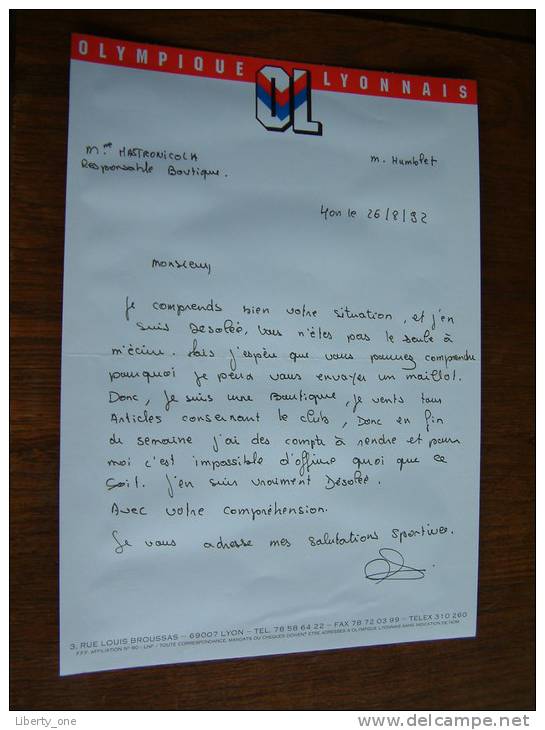 OLYMPIQUE LYONNAIS
OL
Mme MASTRONICOLA
Responsable Boutique.
M. Humblet
Lyon le 26/8/92
Monsieur,
Je comprends bien votre situation, et j'en
suis Désolée, Vous n'êtes pas le seule à
m'écrire. Mais j'espère que vous pourrez comprendre
pourquoi je peux vous envoyer un maillot.
Donc, je suis une Boutique, je vents tous
Articles consernant le club, Donc en fin
de semaine j'ai des compte à rendre et pour
moi c'est impossible d'offrire quoi que ce
soit. J'en suis vraiment Désolée.
Avec votre compréhension.
Je vous adresse mes salutations Sportives.
3, RUE LOUIS BROUSSAS – 69007 LYON – TEL. 78 58 64 22 – FAX 78 72 03 99 – TELEX 310 260
F.F.F. AFFILIATION N° 90 - LNF / TOUTE CORRESPONDANCE, MANDATS OU CHEQUES DOIVENT ETRE ADRESSES A OLYMPIQUE LYONNAIS SANS INDICATION DE NOM.
Liberty_one
delcampe.net